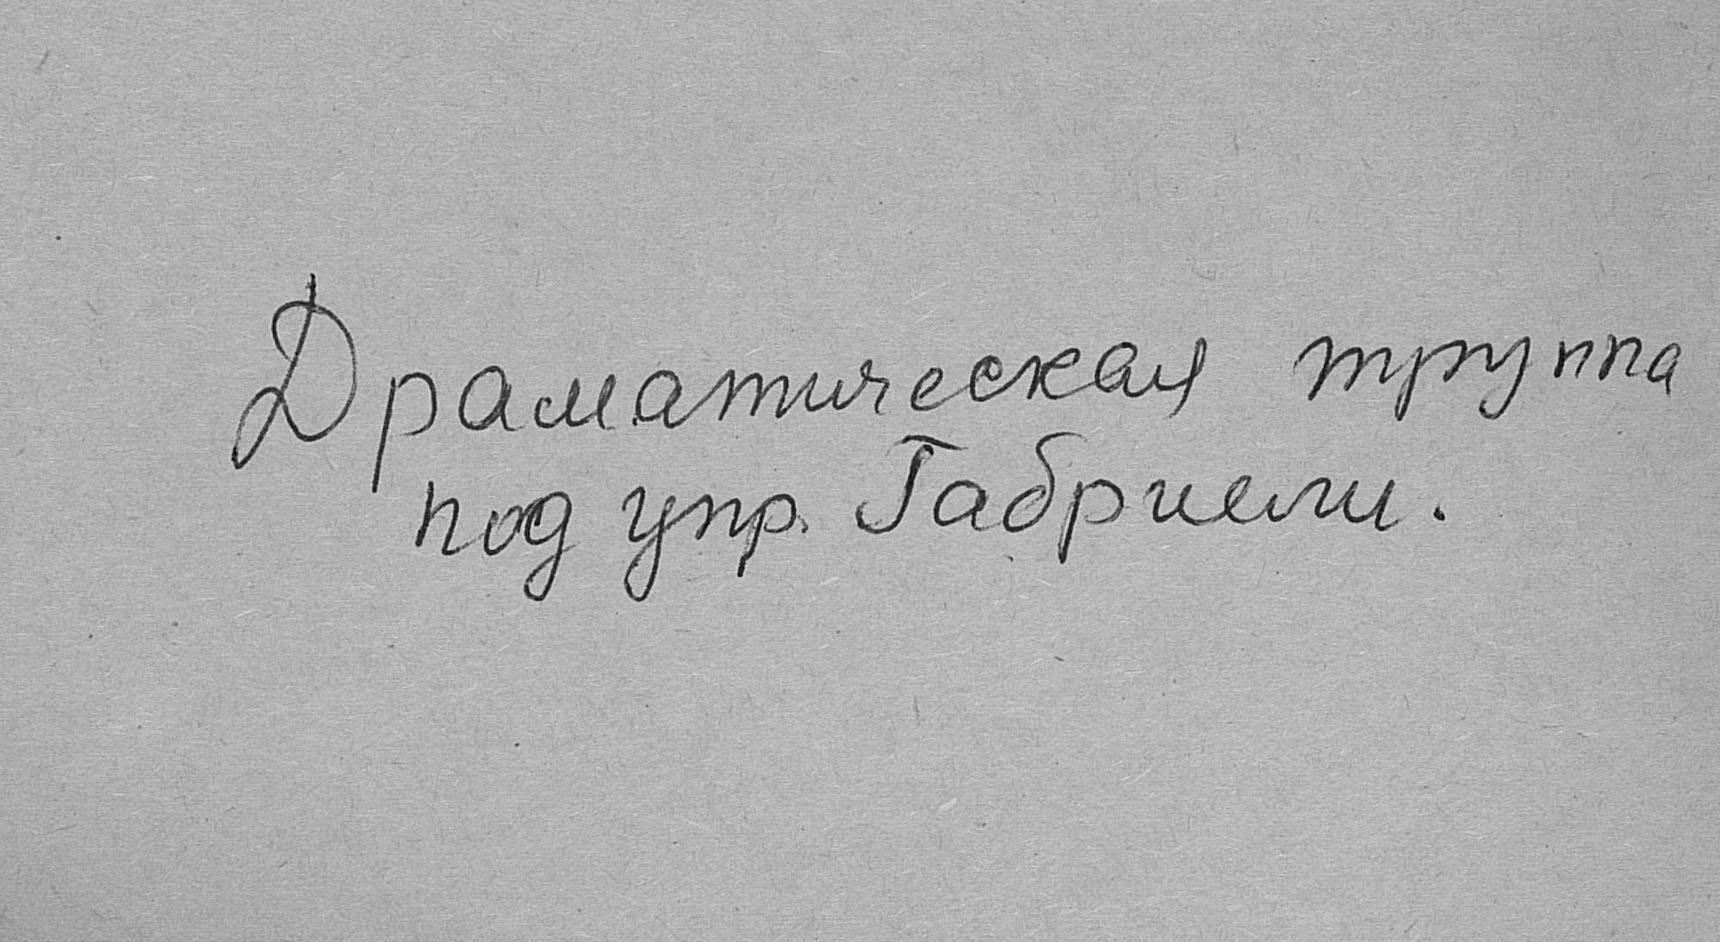 Драматическая труппа
под упр. Габриели.